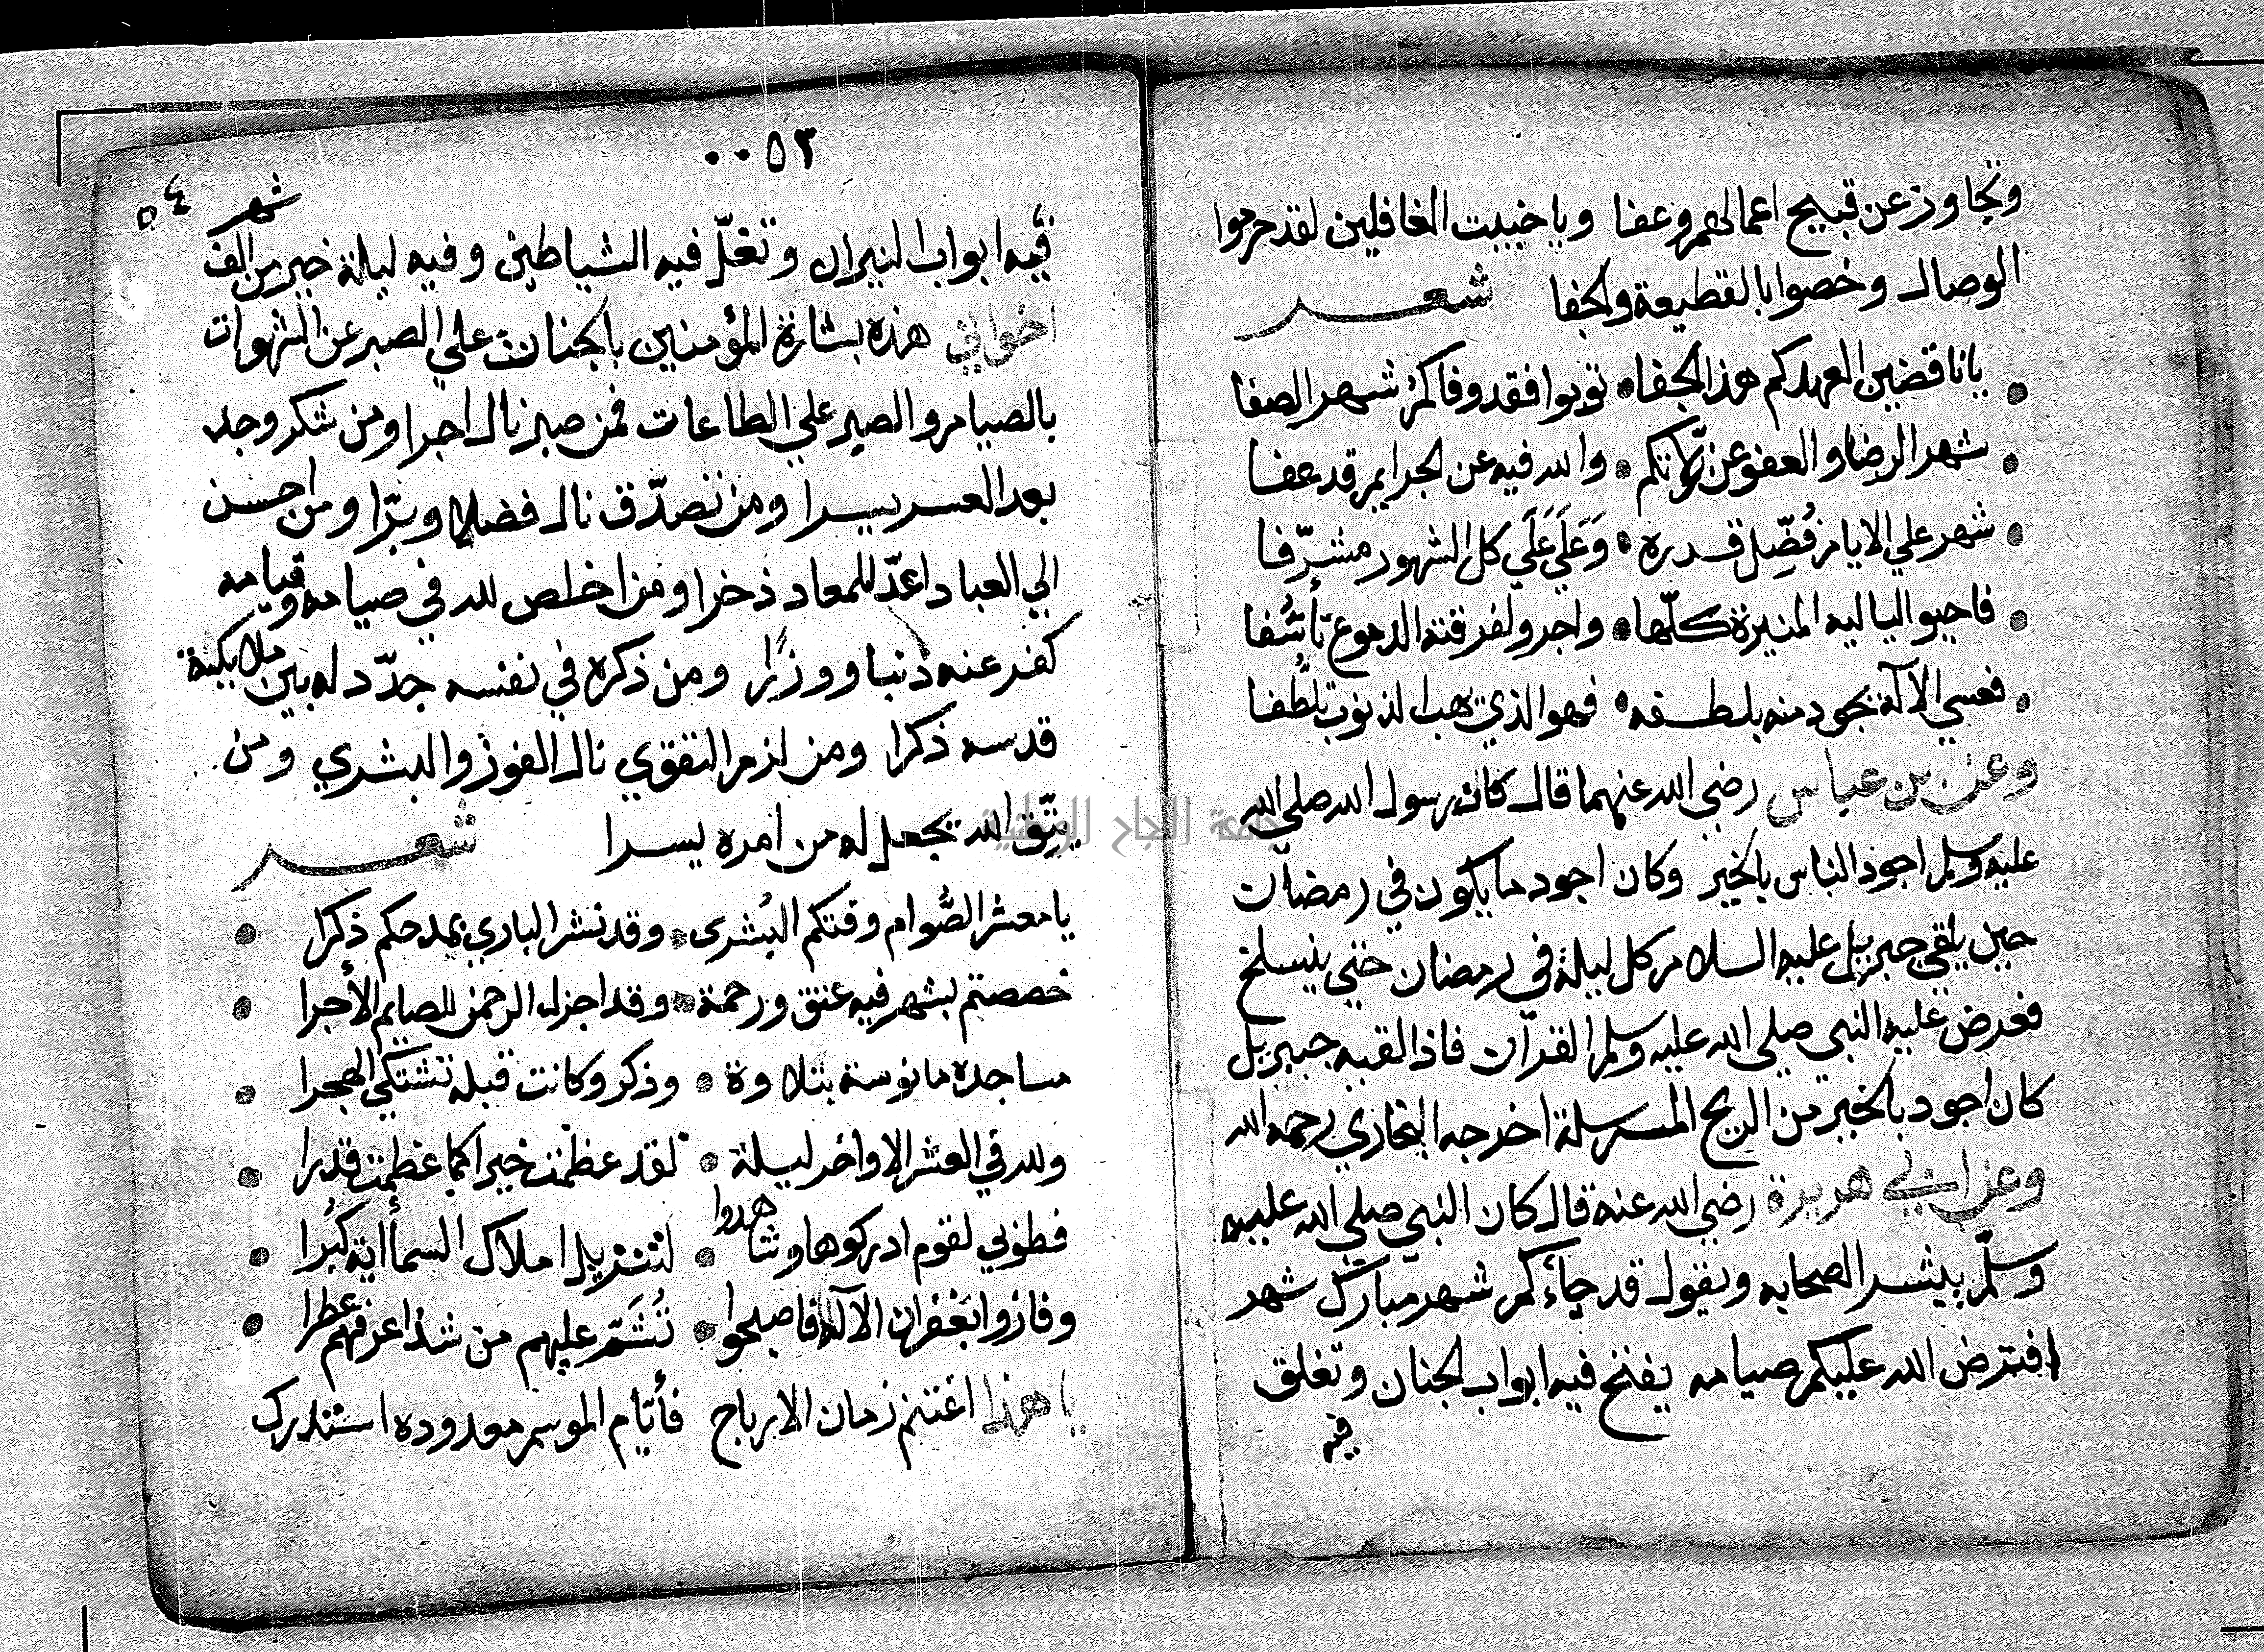 وتجاوز عن قبيح اعمالهم وعفا ويا خيبت الغافلين لقد حرموا
الوصال وخصوا بالقطيعة والجفا شعر
ياناقضين العهد كم هذا الجفا توبوا فقد وفاكم شهر الصفا
شهر الرضا والعفو عن زلاتكم والله فيه عن الجرايم قد عفا
شهر علي الايام فُضِّل قدره وَعَلَي عَلَي كل الشهور مشرّفا
فاحيوا لياليه المنيرة كلّها واجروا لفرقته الدموع تأسُّفا
فعسي الآله يجود منه بلطفه فهو الذي يهب الذنوب تلطُّفا
وعن بن عباس رضي الله عنهما قال كان رسول الله صلي الله
عليه وسلم اجود الناس بالخير وكان اجود ما يكون في رمضان
حين يلقي جبريل عليه السلام كل ليلة في رمضان حتي ينسلخ
فعرض عليه النبي صلي الله عليه وسلم القرآن فاذا لقيه جبريل
كان اجود بالخير من الريح المرسلة اخرجه البخاري رحمه الله
وعن ابي هريرة رضي الله عنه قال كان النبي صلي الله عليه
وسلّم يبشر الصحابه ويقول قد جاءكم شهر مبارك شهر
افترض الله عليكم صيامه يفتح فيه ابواب الجنان وتغلق
فيه
٠٠٥٣
٥٤
فيه ابواب النيران وتغلّ فيه الشياطين وفيه ليلة خير من الف شهر
اخواني هذه بشارة المؤمنين بالجنان علي الصبر عن الشهوات
بالصيام والصبر علي الطاعات فمن صبر نال اجرا ومن شكر وجد
بعد العسر يسرا ومن تصدّق نال فضلا وبرّا ومن احسن
الي العباد اعدّ للمعاد ذخرا ومن اخلص لله في صيامه وقيامه
كفر عنه ذنبا ووزرًا ومن ذكره في نفسه جدّد له بين ملايكية
قدسه ذكرا ومن لزم التقوي نال الفوز والبشري ومن
يتّق الله يجعل له من امره يسرا شعر
يا معشر الصُّوام وفتكم البُشرى وقد نشر الباري بمدحكم ذكرا
خصصتم بشهر فيه عتق ورحمة وقد اجزل الرحمن للصايم الأجرا
مساجده مانوسة بتلاوة وذكر وكانت قبله تشتكي الهجرا
ولله في العشر الاواخر ليلة لقد عظمت خيرا كما عظمت قدرا
فطوبي لقوم ادركوها وشاهدوا لتنزيل املاك السما اية كبرا
وفازوا بغفران الآله فاصبحوا تُشَمّ عليهم من شذا عرفهم عطرا
يا هذا اغتنم زمان الارباح فأيّام الموسم معدوده استدرك